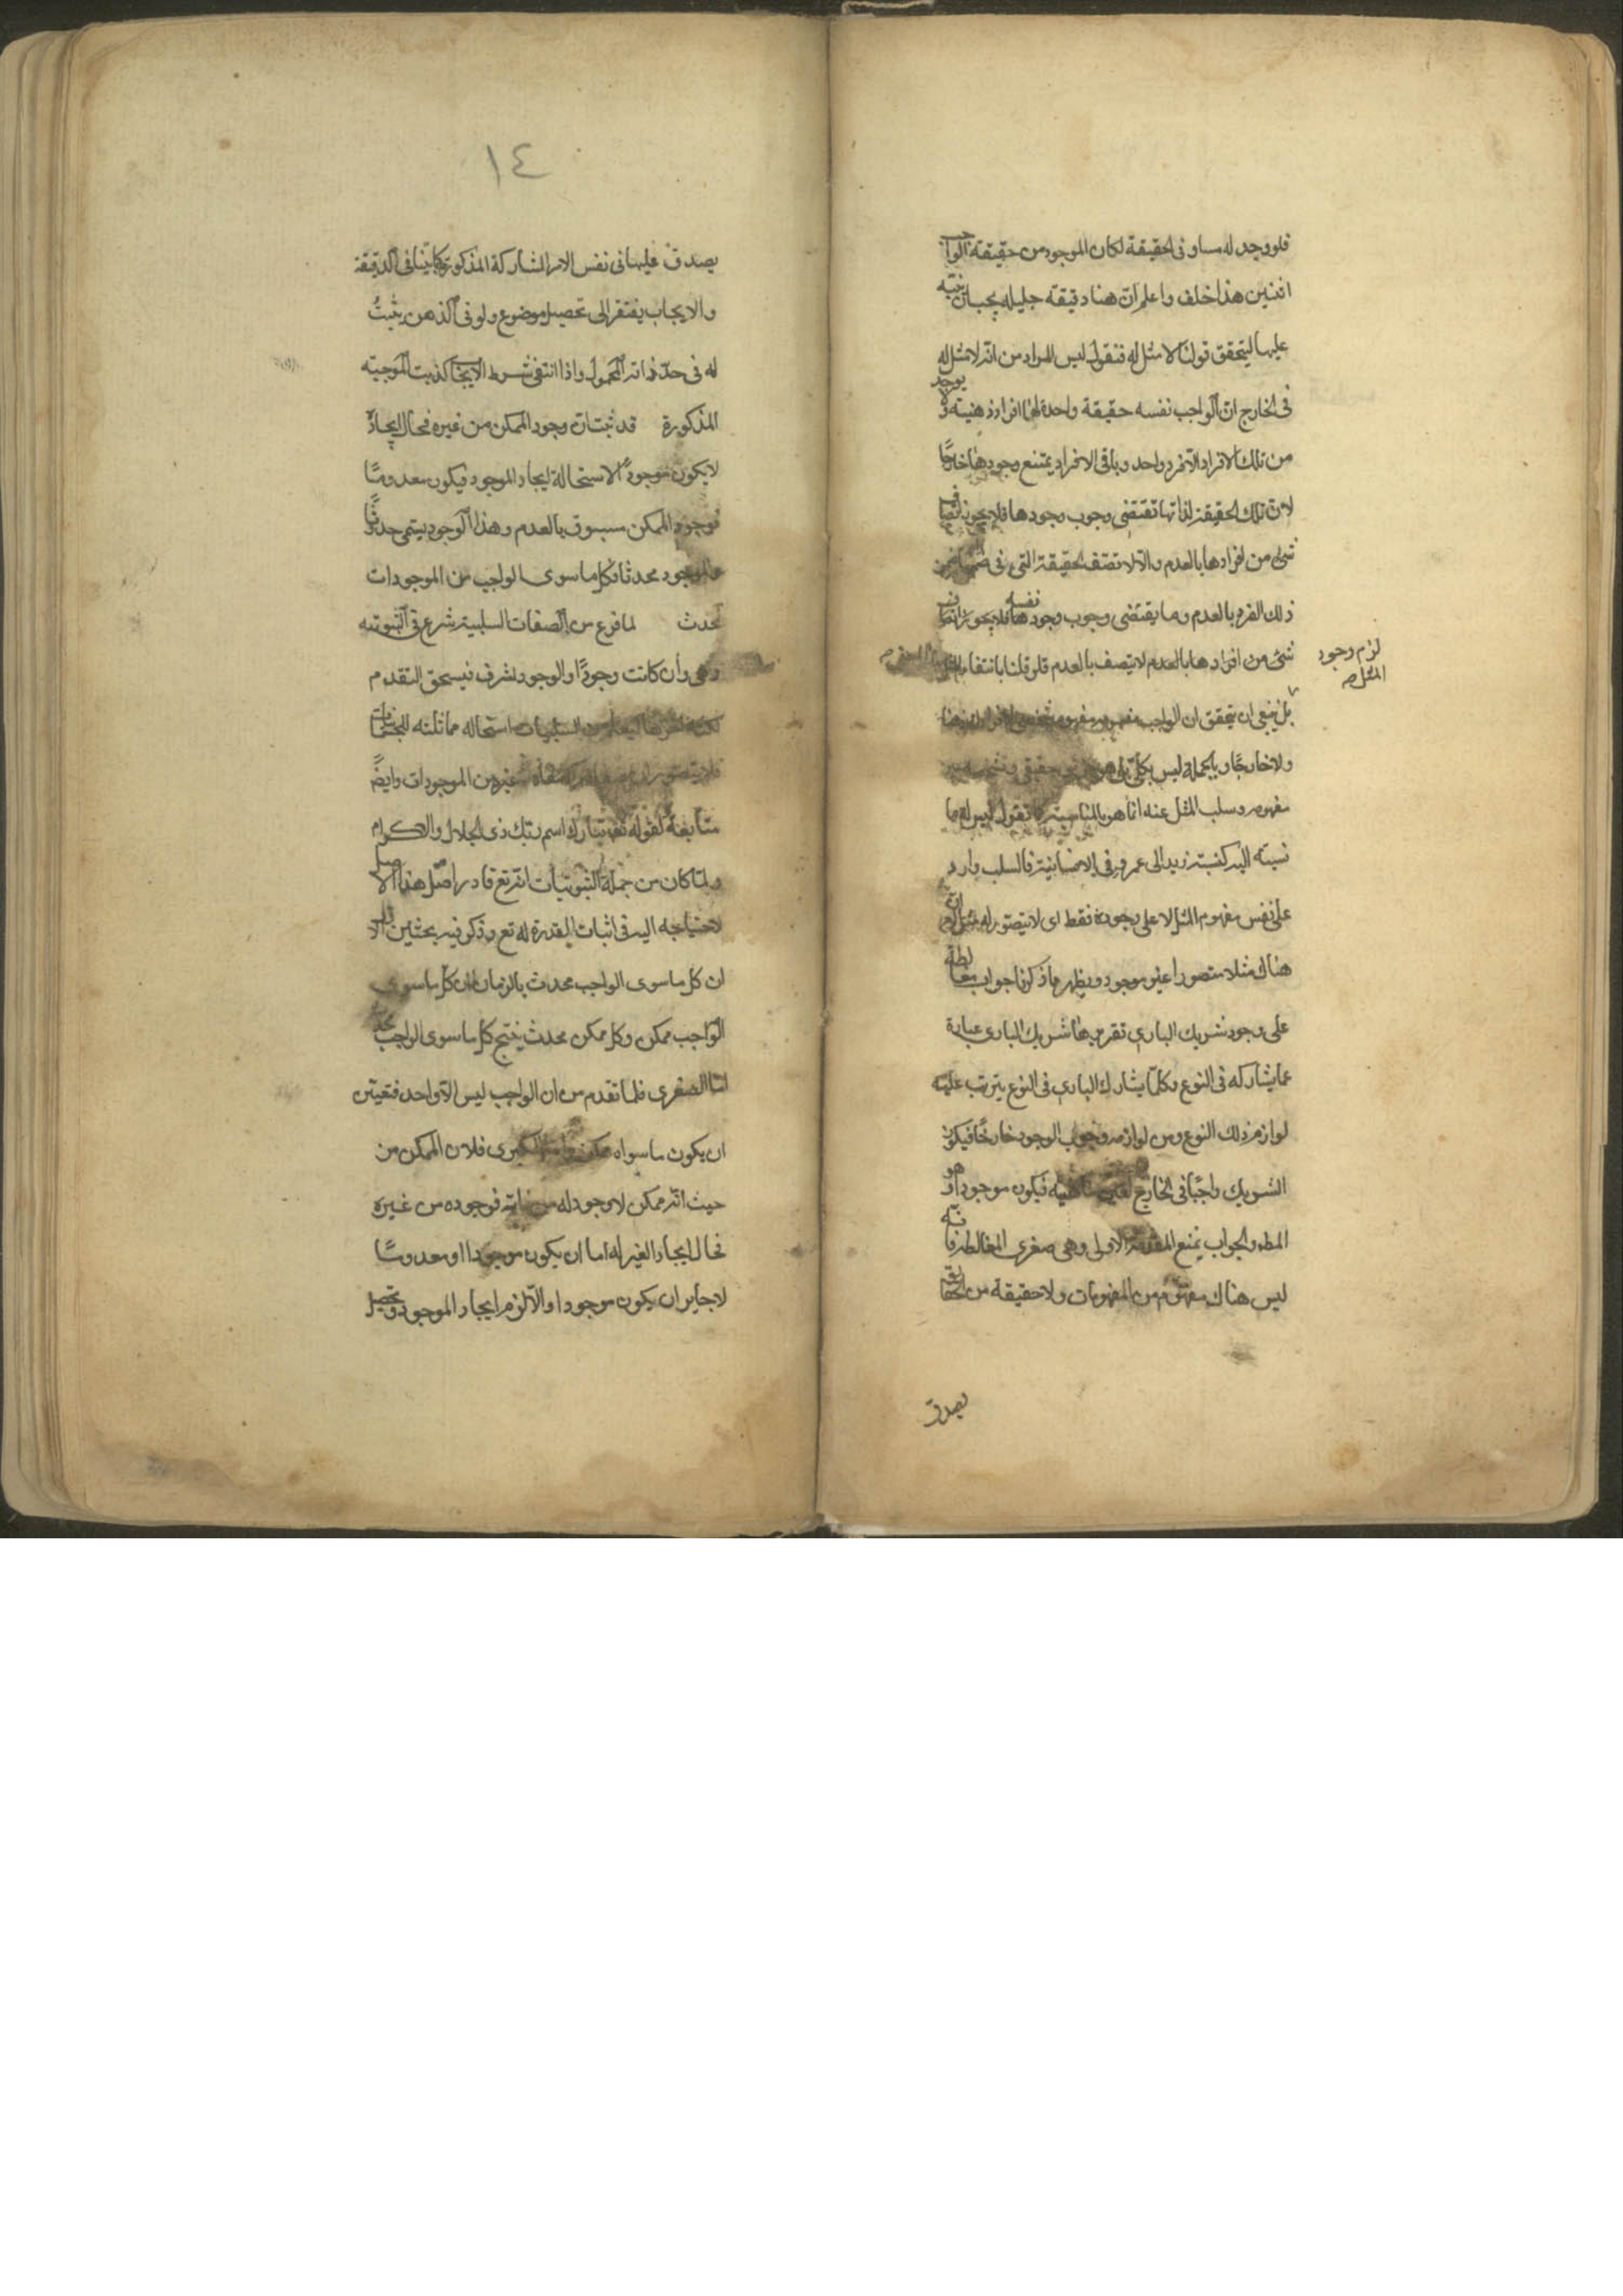 فلو وجد له مساو فى الحقيقة لكان الموجود من حقيقة الواجب
اثنين هذا خلف واعلم انّ هنا دقيقة جليلة يجب ان ننبه
عليها ليتحقق قولنا لا مثل له فنقول ليس المراد من انّه لا مثل له
فى الخارج انّ الواجب نفسه حقيقة واحدة لها افراد ذهنية ولا يوجد
من تلك الافراد الّا فرد واحد وباقى الافراد يمتنع وجودها خارجًا
لانّ تلك الحقيقة لذاتها تقتضى وجوب وجودها فلا يجوز اتصاف
شئ من افرادها بالعدم والّا لاتصف الحقيقة التى فى ضمن
ذلك الفرد بالعدم وما يقتضى وجوب وجود نفسه فلا يجوز اتصاف
شئ من افرادها بالعدم لا يتصف بالعدم فلو قلنا بانتفاء
لزم وجود
المثل صح
بل ينبغى ان يتحقق ان الواجب مفهومه مفهوم شخصى لا افراد له ذهنا
ولا خارجًا وبالجملة ليس بكلّى بل هو حقيقى
مفهومه وسلب المثل عنه انّما هو بالمناسبة كما تقول ليس له ما
نسبته اليه كنسبة زيد الى عمرو فى الانسانية فالسلب وارد
على نفس مفهوم المثل لا على وجوده فقط اى لا يتصور له مثل لا انّ
هناك مثلا متصورا غير موجود ويظهر ما ذكرنا جواب مغالطة
على وجود شريك البارى تقريرها شريك البارى عبارة
عما يشاركه فى النوع وكلّما يشارك البارى فى النوع يترتب عليه
لوازم ذلك النوع ومن لوازمه وجوب الوجود خارجًا فيكون
الشريك واجبًا فى الخارج فيكون موجودا وهو
المط والجواب بمنع المقدمة الاولى وهى صغرى المغالطة فانّه
ليس هناك مفهوم من المفهومات ولا حقيقة من الحقايق
يصدق
١٤
يصدق عليها فى نفس الامر المشاركة المذكورة فى الدقيقة
والايجاب يفتقر الى تحصيل موضوع ولو فى الذهن يثبتُ
له فى حدّ ذاته المحمول واذا انتفى شرط الايجاب كذبت الموجبة
المذكورة قد ثبت ان وجود الممكن من غيره فحال ايجاده
لا يكون موجودًا لاستحالة ايجاد الموجود فيكون معدومًا
فوجود الممكن مسبوق بالعدم وهذا الوجود يسمى حدوثًا
والموجود محدثا فكل ما سوى الواجب من الموجودات
محدث لما فرغ من الصفات السلبية شرع فى الثبوتية
وهى وان كانت وجودًا والوجود اشرف فيستحق التقدم
لكنه اخرها ليعلم من السلبيات استحالة مماثلته للممكنات
فلا يتصور غيره من الموجودات وايضًا
متابعة لقوله تعـ تبارك اسم ربّك ذى الجلال والاكرام
ولمّا كان من جملة الثبوتيات انّه تع قادر اصّل هذا الاصل
لاحتياجه اليه فى اثبات القدرة له تع وذكر فيه بحثين الاول
ان كل ما سوى الواجب محدث بالزمان لان كل ما سوى
الواجب ممكن وكل ممكن محدث ينتج كل ما سوى الواجب محدث
امّا الصغرى فلما تقدم من ان الواجب ليس الّا واحد فتعيّن
ان يكون ما سواه ممكن وامّا الكبرى فلان الممكن من
حيث انّه ممكن لا وجود له من ذاته فوجوده من غيره
فحال ايجاد الغير له اما ان يكون موجودا او معدومًا
لا جايز ان يكون موجودا والّا لزم ايجاد الموجود وتحصيل